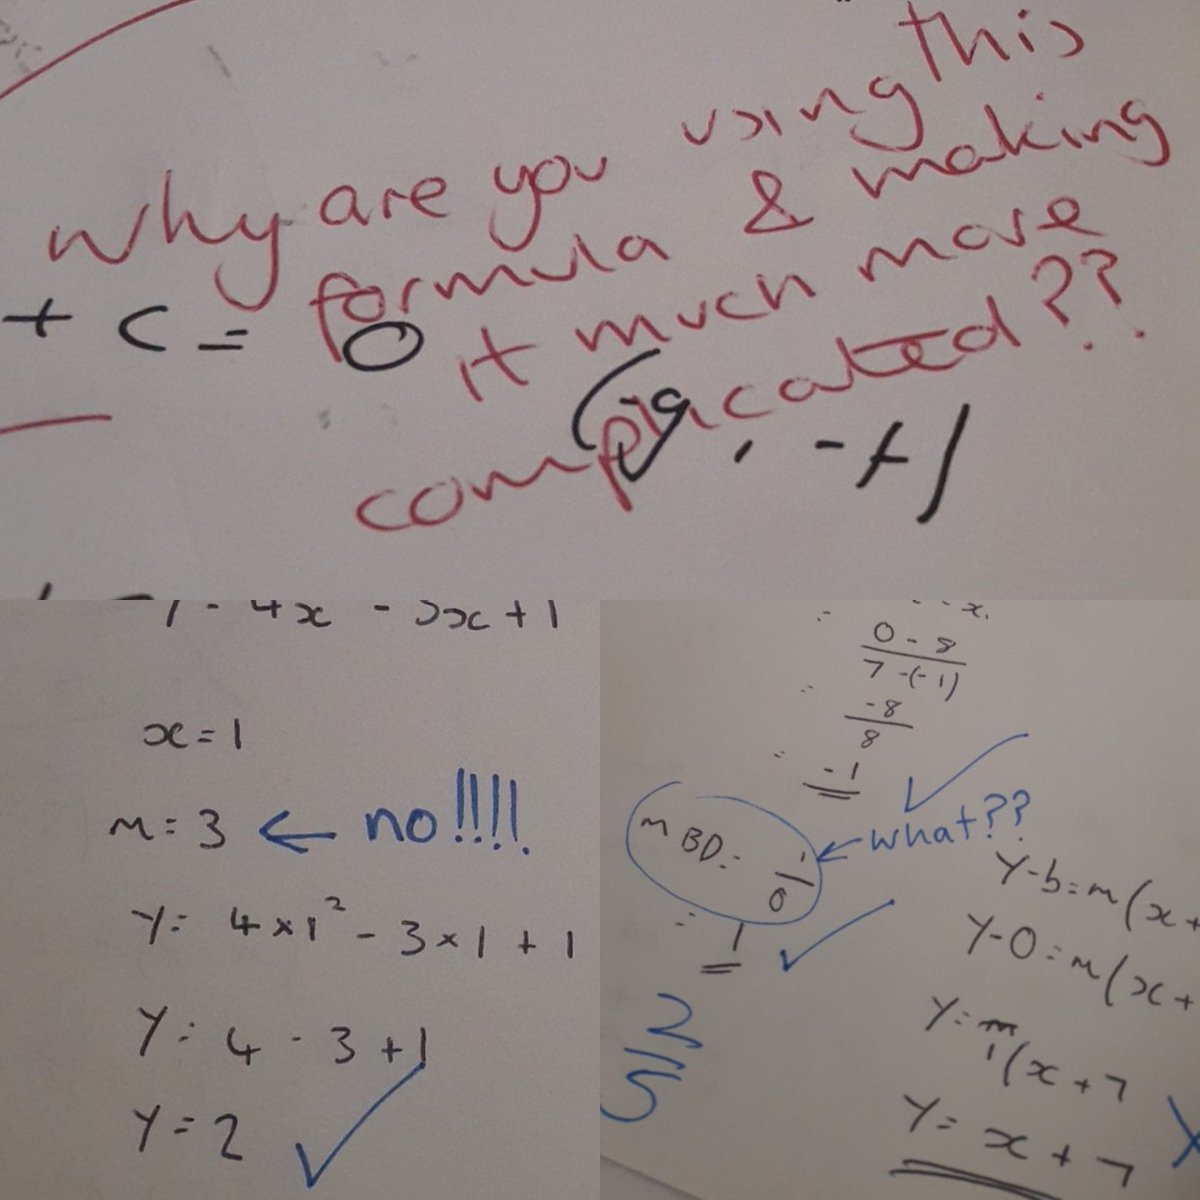 why are you using this
formula & making
+ c = 0 it much more
complicated??
(-g, -f)
- 4x - 3x + 1
x = 1
m = 3 ← no!!!!
y = 4 x 1² - 3 x 1 + 1
y = 4 - 3 + 1
y = 2 ✓
0 - 8
7 - (-1)
-8
8
-1 ✓
m BD = 1/0 ← what??
= 1 ✓
2/5
y - b = m(x +
y - 0 = m(x +
y = m/1 (x + 7
y = x + 7